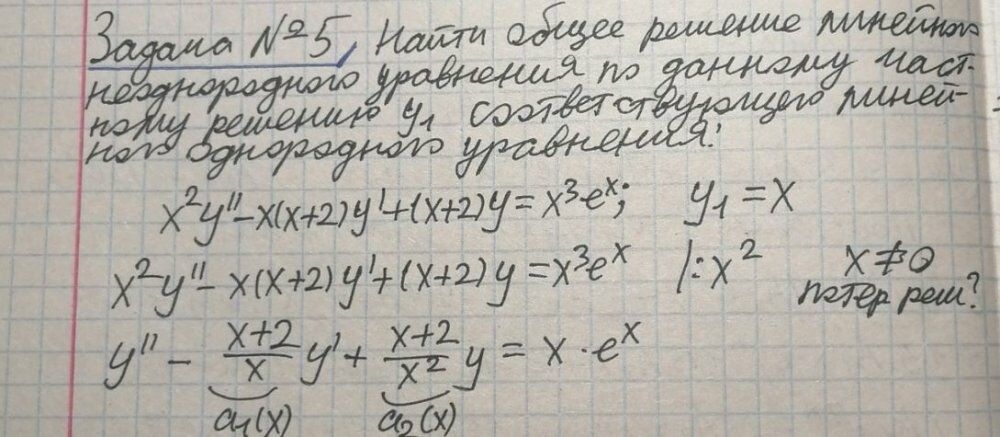 Задача №5, Найти общее решение линейного
неоднородного уравнения по данному част-
ному решению y₁ соответствующего линей-
ного однородного уравнения:
x²y''-x(x+2)y'+(x+2)y=x³·eˣ; y₁=x
x²y''-x(x+2)y'+(x+2)y=x³eˣ /:x² x≠0
потер реш?
y'' - (x+2)/x y' + (x+2)/x² y = x·eˣ
a₁(x) a₂(x)